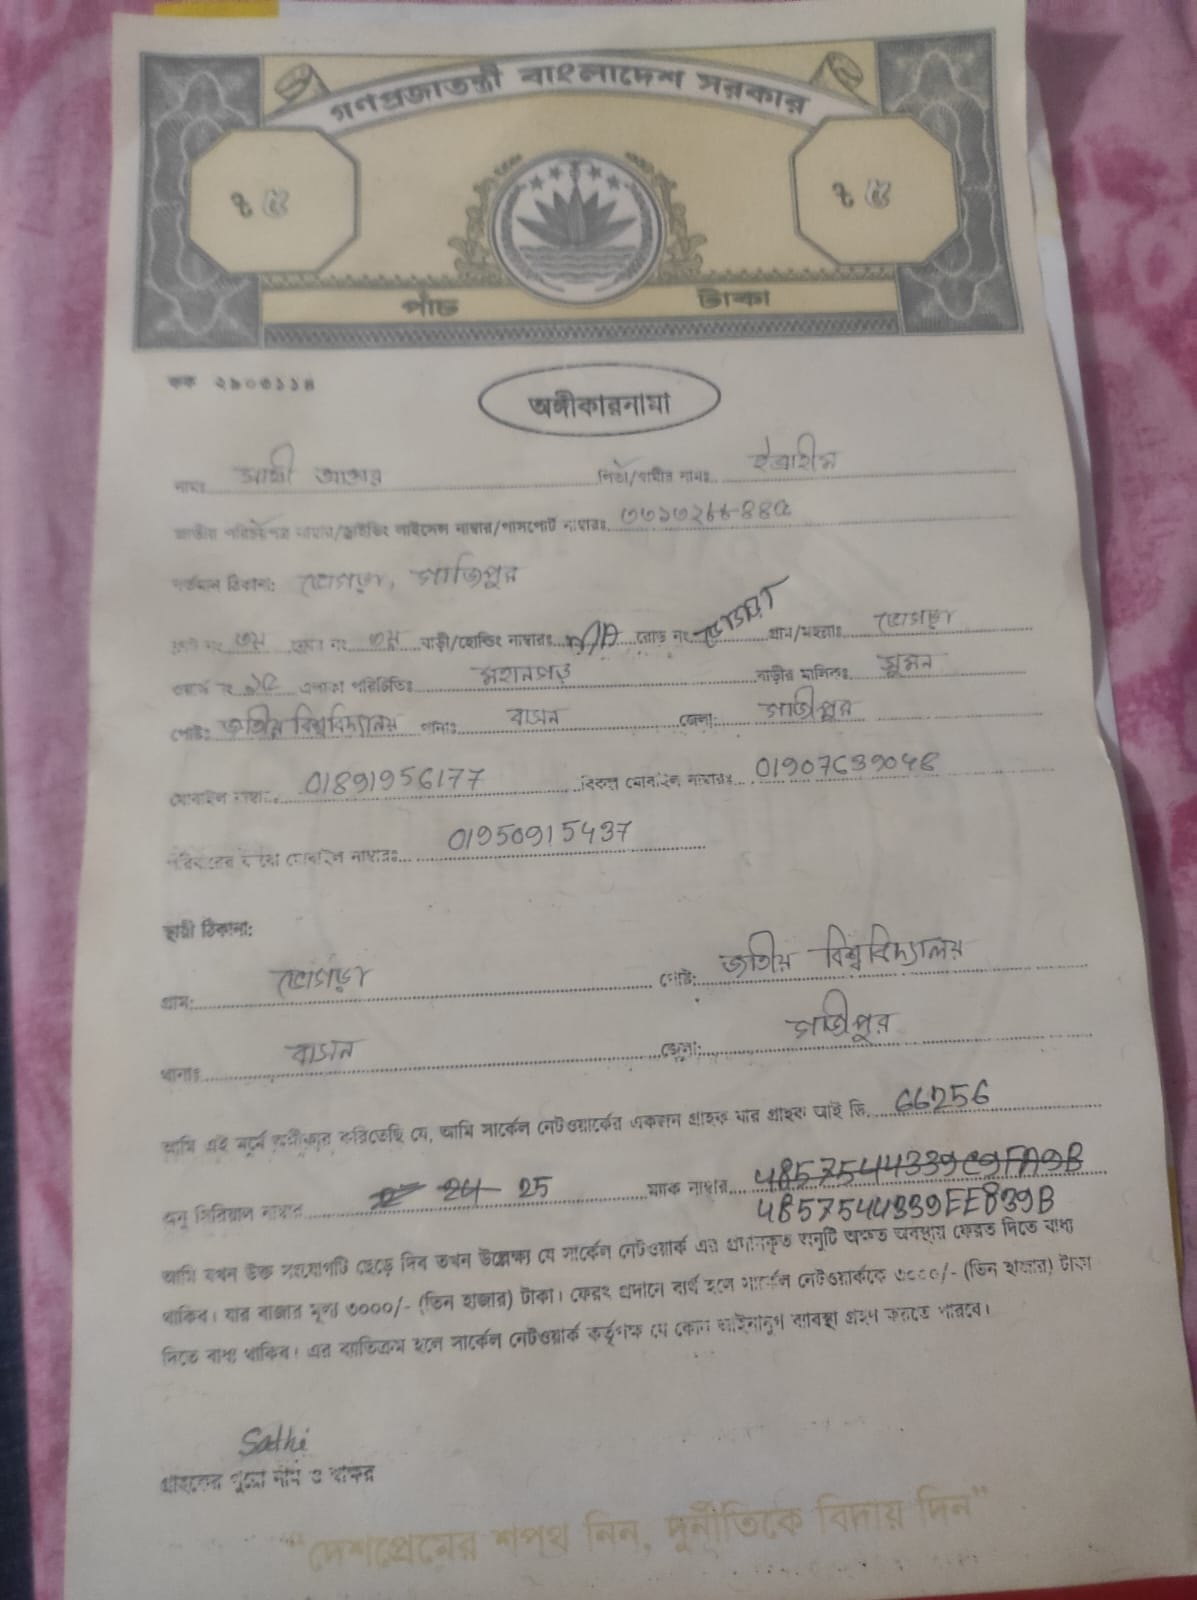 গণপ্রজাতন্ত্রী বাংলাদেশ সরকার
৳ ৫ ৳ ৫
পাঁচ টাকা
কক ২৯০৩১১৪
অঙ্গীকারনামা
নামঃ সাথী আক্তার পিতা/স্বামীর নামঃ ইব্রাহীম
জাতীয় পরিচয়পত্র নাম্বার/ড্রাইভিং লাইসেন্স নাম্বার/পাসপোর্ট নাম্বারঃ
বর্তমান ঠিকানা: ভোগড়া, গাজিপুর
ফ্লাট নং ৩য় ফ্লোর নং ৩য় বাড়ী/হোল্ডিং নাম্বারঃ N/A রোড নং ভোগড়া গ্রাম/মহল্লাঃ ভোগড়া
ওয়ার্ড নং ১৫ এলাকা পরিচিতিঃ বাড়ীর মালিকঃ সুমন
পোষ্ট: জাতীয় বিশ্ববিদ্যালয় থানাঃ বাসন জেলা: গাজীপুর
মোবাইল নাম্বারঃ 01891956177 বিকল্প মোবাইল নাম্বারঃ 01907639048
পরিবারের মোবাইল নাম্বারঃ 01950915437
স্থায়ী ঠিকানা:
গ্রাম: ভোগড়া পোষ্ট: জাতীয় বিশ্ববিদ্যালয়
থানাঃ বাসন জেলা: গাজীপুর
আমি এই মর্মে অঙ্গীকার করিতেছি যে, আমি সার্কেল নেটওয়ার্কের একজন গ্রাহক যার গ্রাহক আই ডি. 66256
অনু সিরিয়াল নাম্বার 24 25 ম্যাক নাম্বার 4857544339C9FA9B
4857544339EE839B
আমি যখন উক্ত সংযোগটি ছেড়ে দিব তখন উল্লেক্ষ্য যে সার্কেল নেটওয়ার্ক এর প্রদানকৃত অনুটি অক্ষত অবস্থায় ফেরত দিতে বাধ্য
থাকিব। যার বাজার মূল্য ৩০০০/- (তিন হাজার) টাকা। ফেরৎ প্রদানে ব্যর্থ হলে সার্কেল নেটওয়ার্ককে ৩০০০/- (তিন হাজার) টাকা
দিতে বাধ্য থাকিব। এর ব্যতিক্রম হলে সার্কেল নেটওয়ার্ক কর্তৃপক্ষ যে কোন আইনানুগ ব্যবস্থা গ্রহণ করতে পারবে।
Sathi
গ্রাহকের পুরো নাম ও স্বাক্ষর
“দেশপ্রেমের শপথ নিন, দুর্নীতিকে বিদায় দিন”